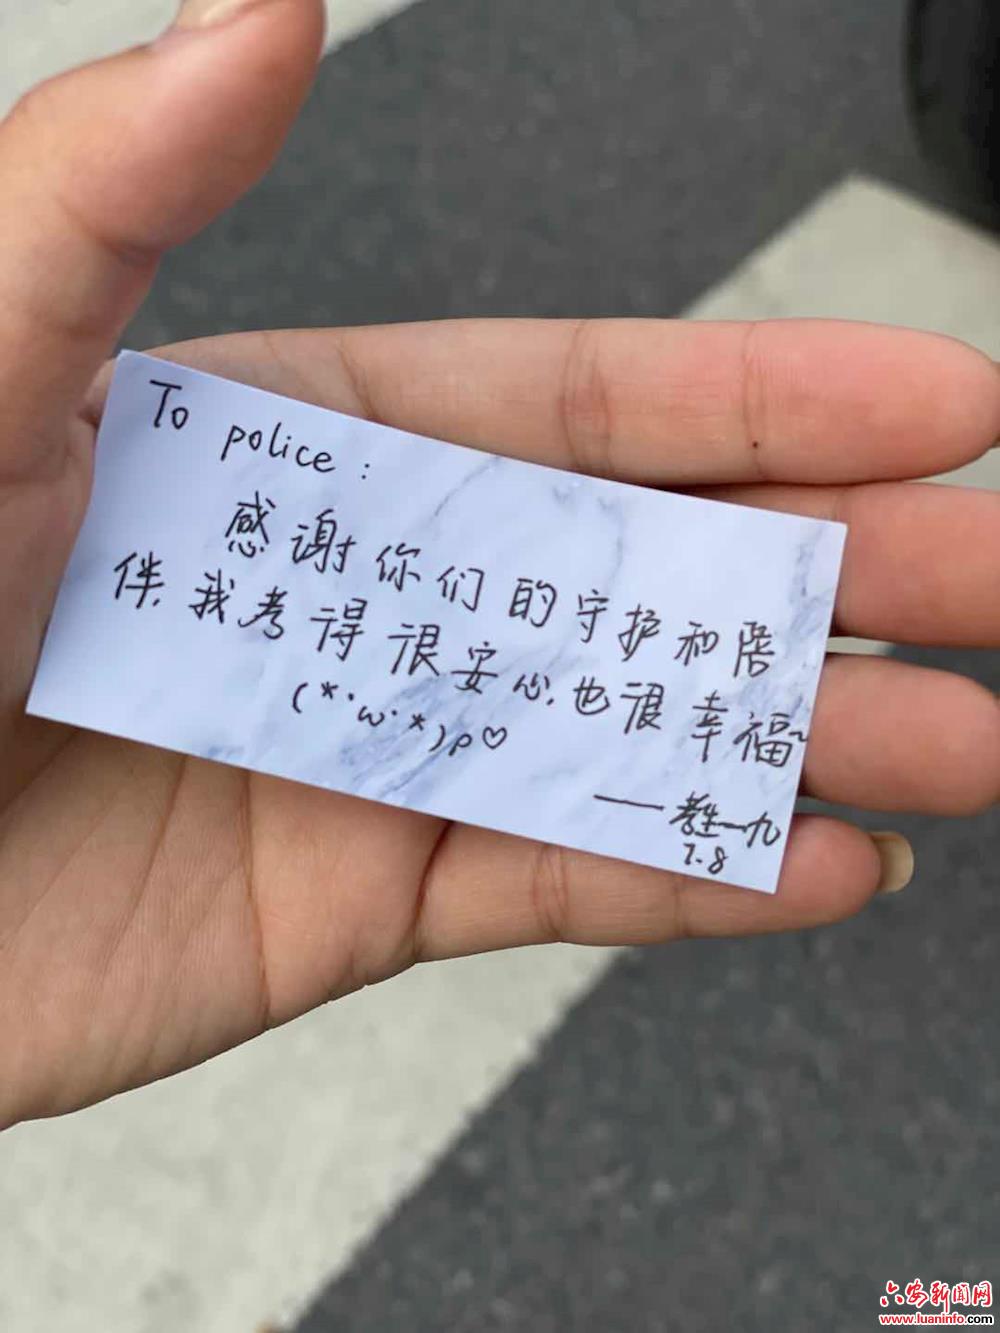 To police:
感谢你们的守护和陪
伴,我考得很安心,也很幸福~
(*·ω·*)ρ♡
——考生一九
7.8
六安新闻网
www.luaninfo.com